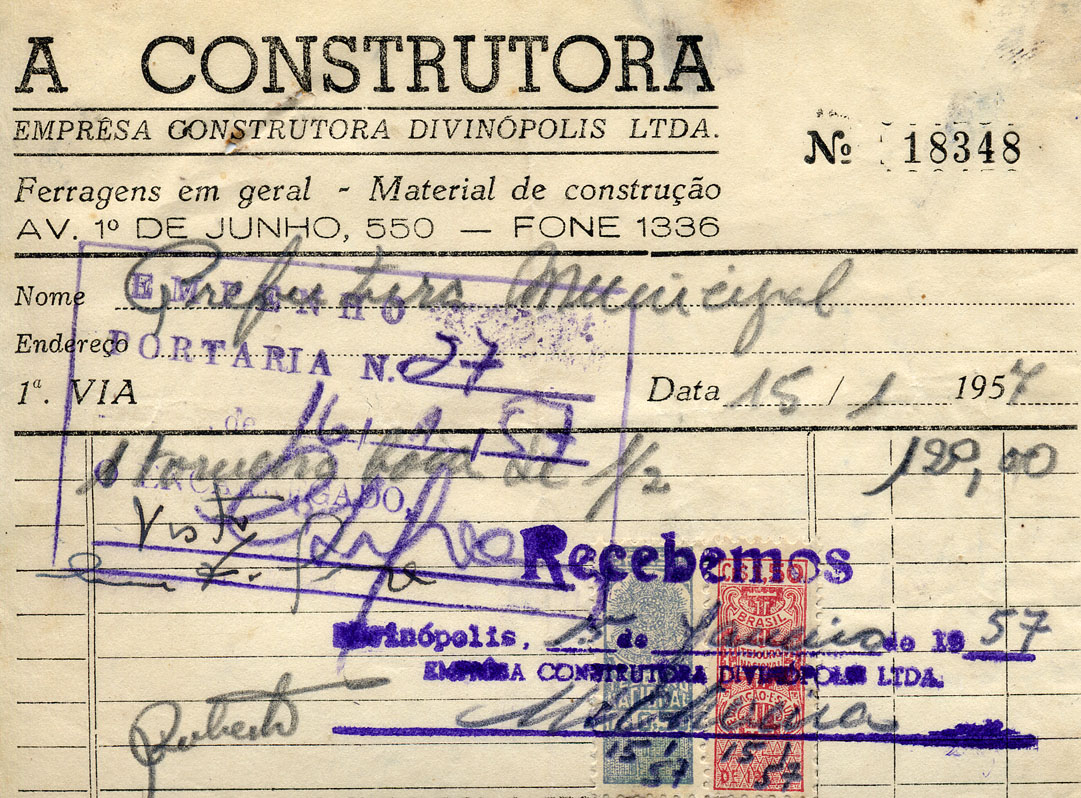 A CONSTRUTORA
EMPRÊSA CONSTRUTORA DIVINÓPOLIS LTDA.
Nº 18348
Ferragens em geral - Material de construção
AV. 1º DE JUNHO, 550 — FONE 1336
Nome Prefeitura Municipal
EMPENHO
Endereço
PORTARIA N. 27
1ª. VIA
Data 15 / 1 1957
de 16 / 1 / 57
1 torneira boia de 1/2 120,00
ENCARREGADO,
Visto
Recebemos
Divinópolis, 15 de Janeiro de 1957
EMPRÊSA CONSTRUTORA DIVINÓPOLIS LTDA.
BRASIL
Roberto
15 1 57
15 1 57